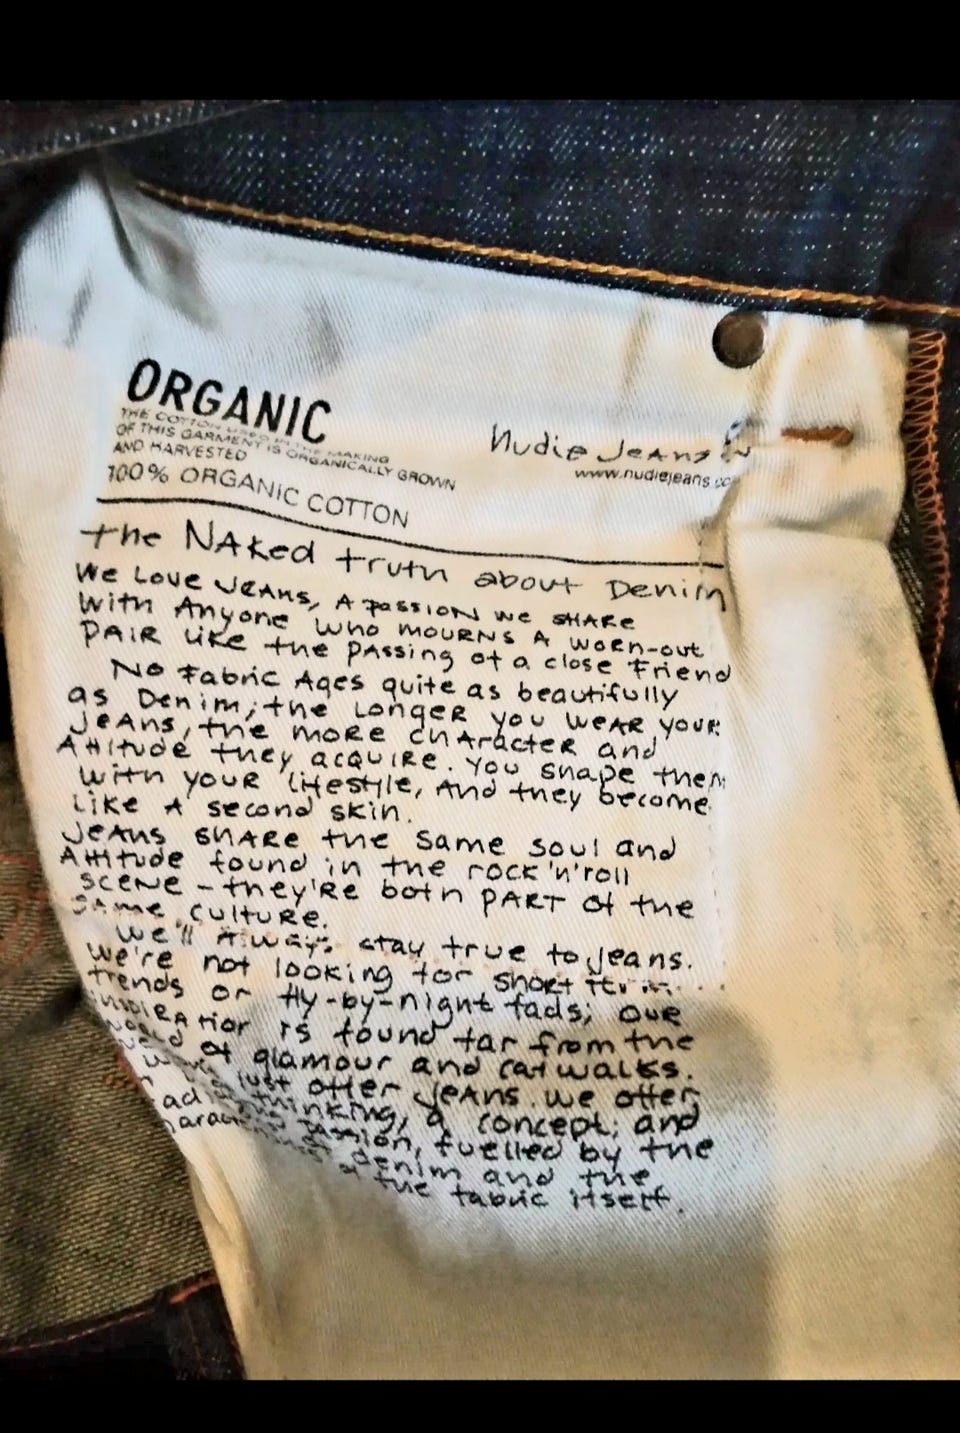 ORGANIC
THE COTTON USED IN THE MAKING
OF THIS GARMENT IS ORGANICALLY GROWN
AND HARVESTED
100% ORGANIC COTTON
Nudie Jeans
www.nudiejeans.co
the NAKed truth about Denim
We Love JEAns, A passion we sHARe
With Anyone who mourns A worn-out
PAIR like the passing of a close Friend
No Fabric Ages quite as beautifully
as Denim; the Longer you weAR your
JeAns, the more chAracter and
Attitude they acquire. You shape them
With your lifestyle, And they become
Like A second skin.
JeAns shARe the same soul and
Attitude found in the rock'n'roll
scene - they're both pART of the
sAme culture.
We'll Always stay true to Jeans.
We're not looking for short term
trends or fly-by-night fads; our
inspiration is found far from the
world of glamour and catwalks.
just offer Jeans. we offer
thinking, a concept, and
passion, fuelled by the
denim and the
the fabric itself.